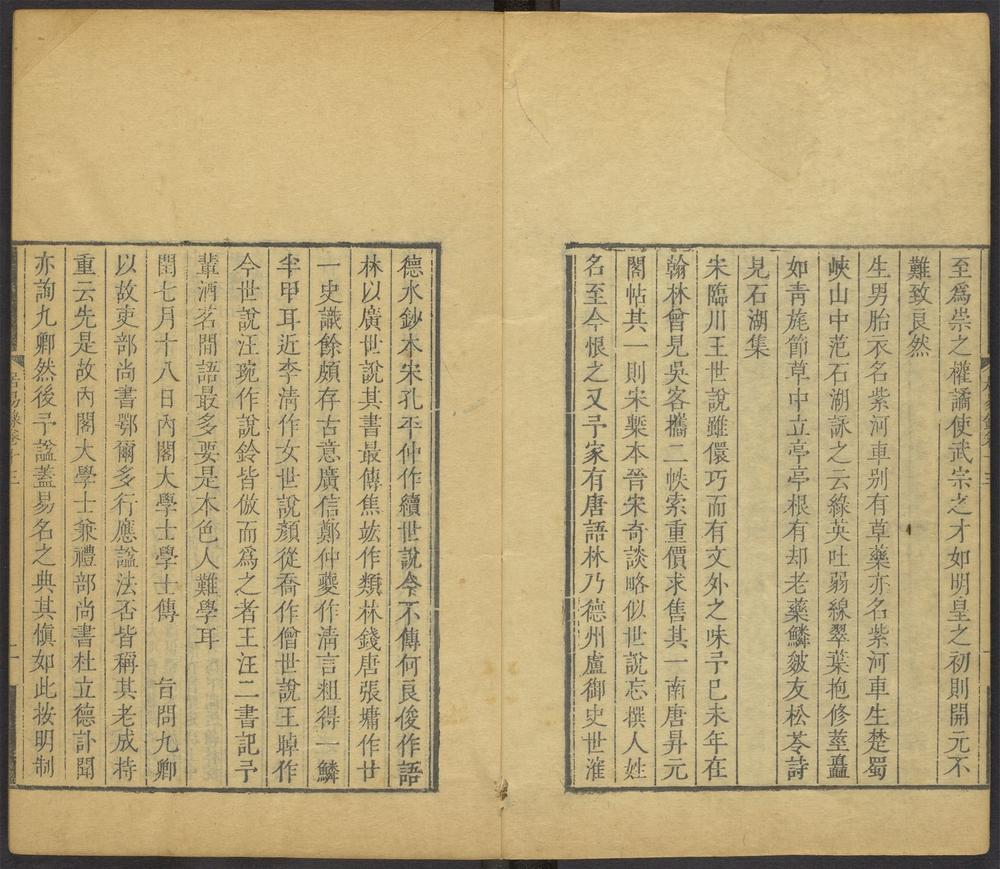 至爲祟之權譎使武宗之才如明皇之初則開元不
難致良然
生男胎衣名紫河車别有草藥亦名紫河車生楚蜀
峽山中范石湖詠之云綠英吐弱線翠葉抱修莖矗
如青旄節草中立亭亭根有却老藥鱗皴友松苓詩
見石湖集
宋臨川王世說雖儇巧而有文外之味予己未年在
翰林曾見吳客攜二帙索重價求售其一南唐昇元
閣帖其一則宋槧本晉宋奇談略似世說忘撰人姓
名至今恨之又予家有唐語林乃德州盧御史世㴶
德水鈔本宋孔平仲作續世說今不傳何良俊作語
林以廣世說其書最傳焦竑作類林錢唐張墉作廿
一史識餘頗存古意廣信鄭仲夔作淸言粗得一鱗
半甲耳近李淸作女世說顏從喬作僧世說王晫作
今世說汪琬作說鈴皆倣而爲之者王汪二書記予
輩酒茗閒語最多要是本色人難學耳
閏七月十八日內閣大學士學士傳 旨問九卿
以故吏部尚書鄂爾多行應諡法否皆稱其老成持
重云先是故內閣大學士兼禮部尚書杜立德訃聞
亦詢九卿然後予諡蓋易名之典其愼如此按明制
居易錄卷十三
二